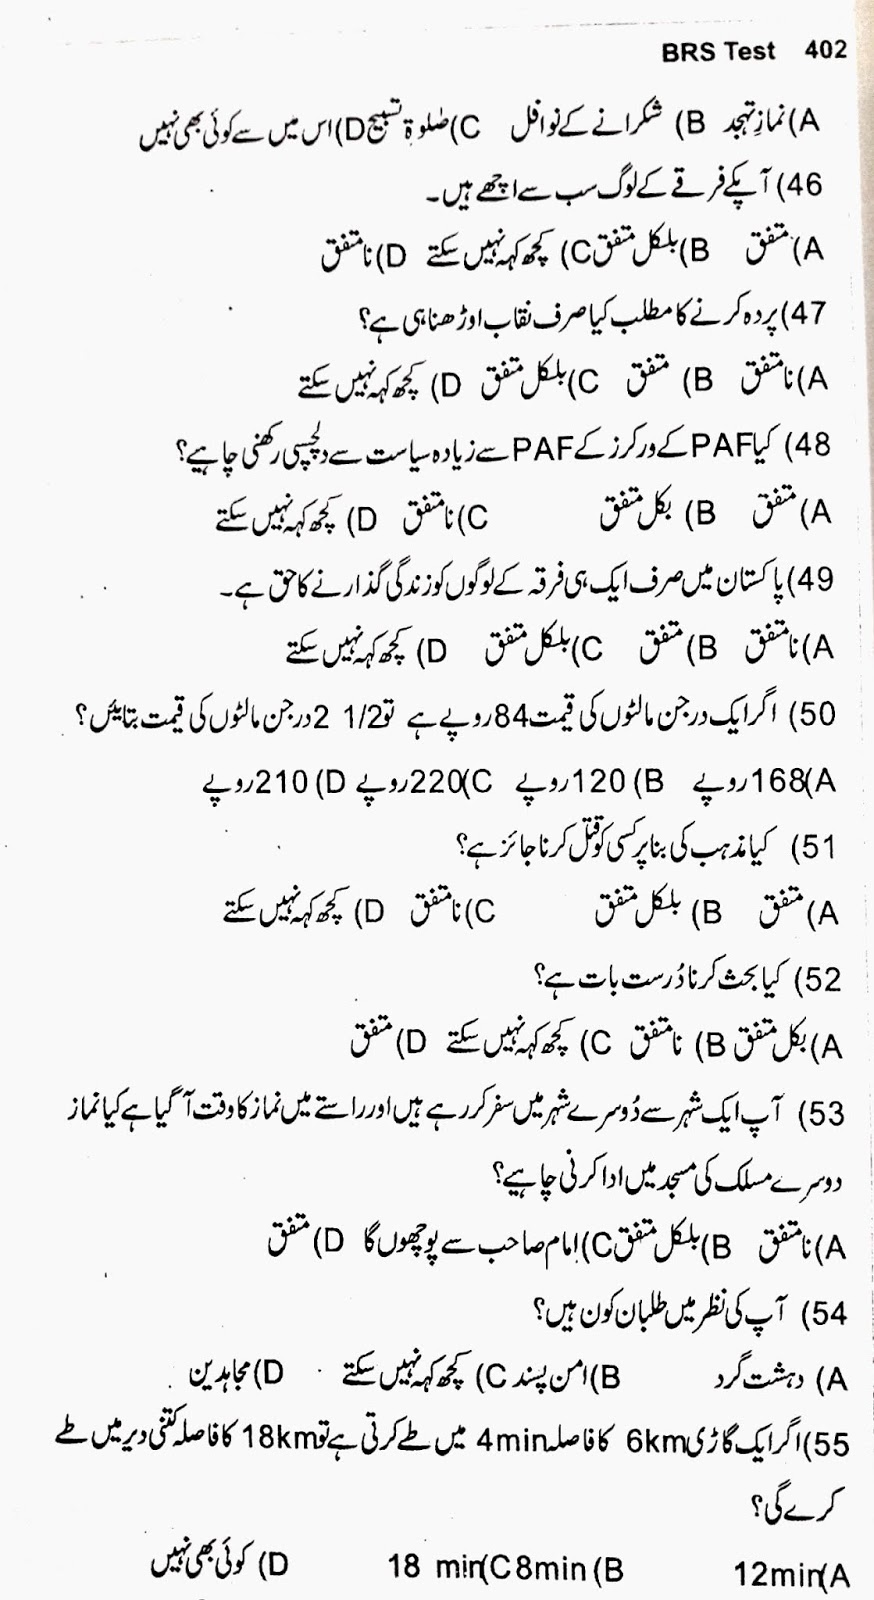 BRS Test 402
A)نمازِ تہجد B) شکرانے کے نوافل C)صلوۃ تسبیح D)اس میں سے کوئی بھی نہیں
46) آپکے فرقے کے لوگ سب سے اچھے ہیں۔
A)متفق B)بلکل متفق C) کچھ کہہ نہیں سکتے D)نا متفق
47)پردہ کرنے کا مطلب کیا صرف نقاب اوڑھنا ہی ہے؟
A)نا متفق B) متفق C)بلکل متفق D) کچھ کہہ نہیں سکتے
48) کیا PAF کے ورکرز کے PAF سے زیادہ سیاست سے دلچسپی رکھنی چاہیے؟
A)متفق B) بکل متفق C)نا متفق D) کچھ کہہ نہیں سکتے
49)پاکستان میں صرف ایک ہی فرقہ کے لوگوں کو زندگی گذارنے کا حق ہے۔
A)نا متفق B)متفق C)بلکل متفق D) کچھ کہہ نہیں سکتے
50) اگر ایک درجن مالٹوں کی قیمت 84 روپے ہے تو 2 1/2 درجن مالٹوں کی قیمت بتایئں؟
A)168روپے B)120روپے C)220روپے D)210روپے
51) کیا مذہب کی بنا پر کسی کو قتل کرنا جائز ہے؟
A)متفق B) بلکل متفق C)نا متفق D) کچھ کہہ نہیں سکتے
52) کیا بحث کرنا دُرست بات ہے؟
A)بکل متفق B) نا متفق C) کچھ کہہ نہیں سکتے D)متفق
53) آپ ایک شہر سے دُوسرے شہر میں سفر کر رہے ہیں اور راستے میں نماز کا وقت آ گیا ہے کیا نماز
دوسرے مسلک کی مسجد میں ادا کرنی چاہیے؟
A)نا متفق B)بلکل متفق C)اِمام صاحب سے پوچھوں گا D)متفق
54) آپ کی نظر میں طلبان کون ہیں؟
A) دہشت گرد B)امن پسند C) کچھ کہہ نہیں سکتے D)مجاہدین
55)اگر ایک گاڑی 6km کا فاصلہ 4min میں طے کرتی ہے تو 18km کا فاصلہ کتنی دیر میں طے
کرے گی؟
A)12min B)8min C)18 min D) کوئی بھی نہیں